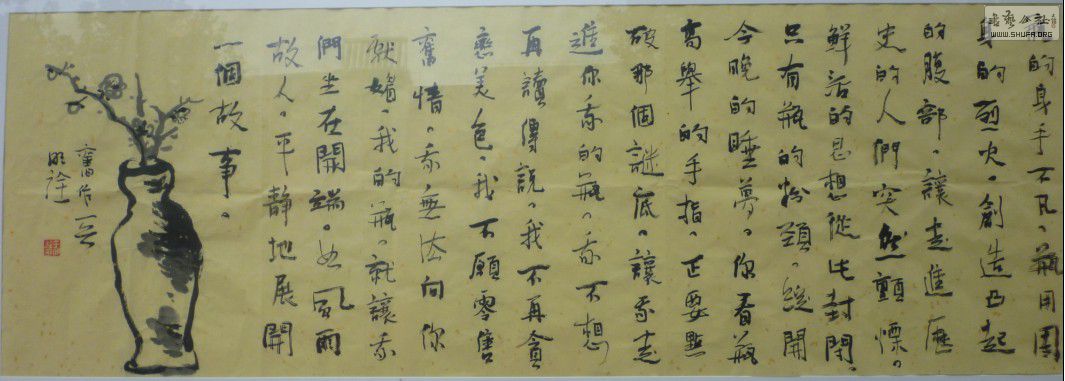 的身手不凡。瓶用圓
身的烈火。創造凸起
的腹部。讓走進歷
史的人們突然顫慄。
鮮活的思想從此封閉。
只有瓶的粉頸。綻開
今晚的睡夢。你看瓶
高舉的手指。正要點
破那個謎底。讓我走
進你我的瓶。我不想
再讀傳說。我不再貪
戀美色。我不願零售
舊情。我無法向你
獻媚。我的瓶。就讓我
們坐在開端。如風雨
故人。平靜地展開
一個故事。
舊作一首
明詮
書藝公社
WWW.SHUFA.ORG